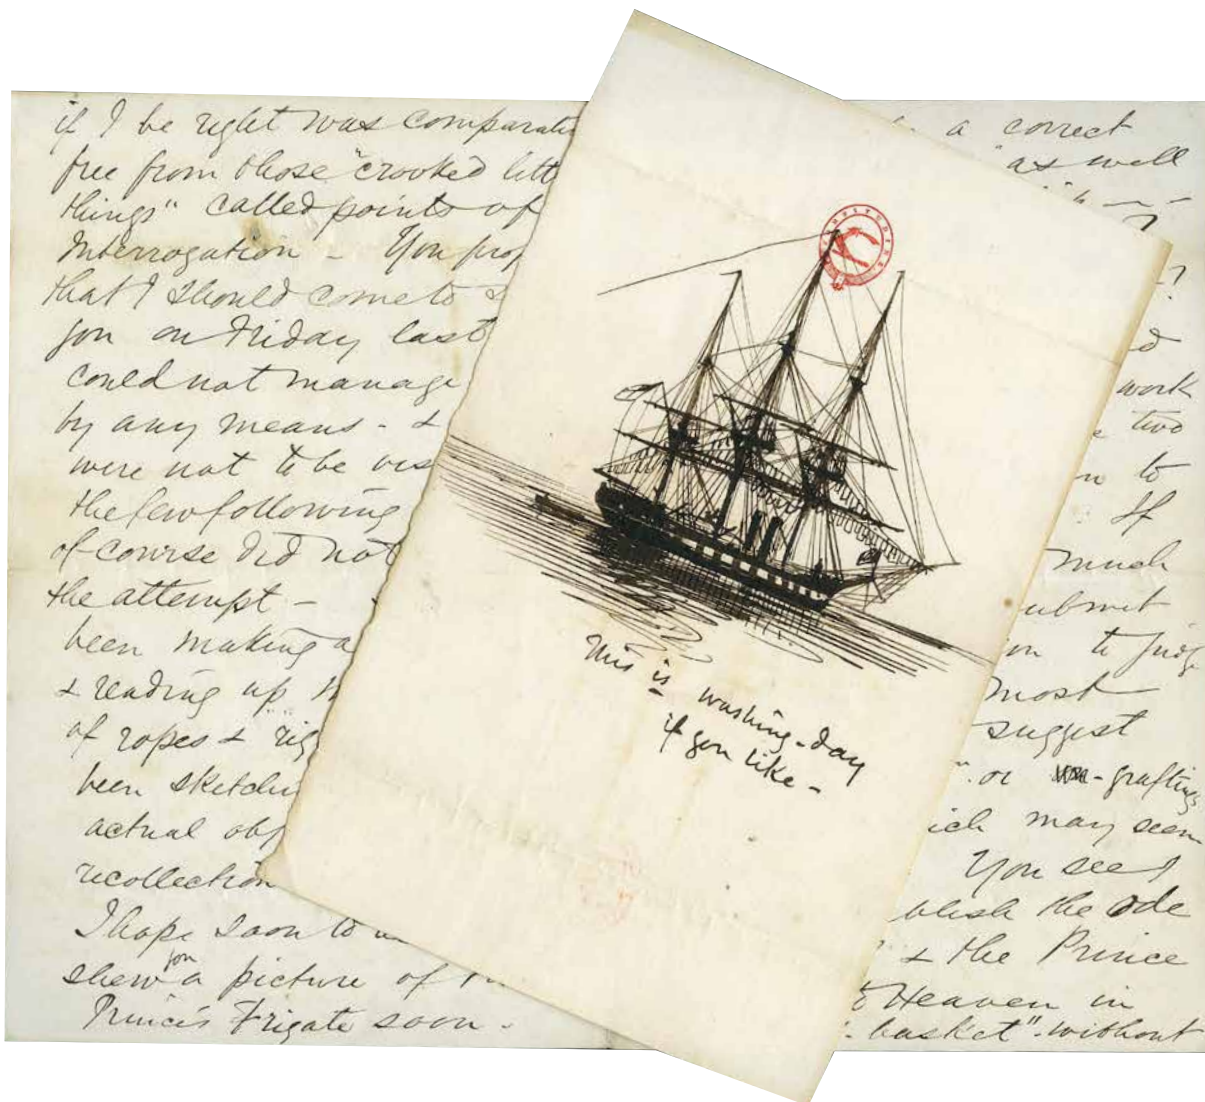 if I be right was comparati
free from those "crooked litt
things" called points of
Interrogation - You prop
that I should come to
you on Friday last
could not manage
by any means - &
were not to be vis
the few following
of course did not
the attempt -
been making a
& reading up
of ropes & rig
been sketchi
actual obj
recollection
I hope soon to
shew you a picture of
Prince's Frigate soon -
This is washing-day
if you like -
a correct
as well
work
two
to
If
much
ubmit
to judge
most
suggest
or -graftings
ich may seem
You see I
blish the Ode
& the Prince
Heaven in
basket" without